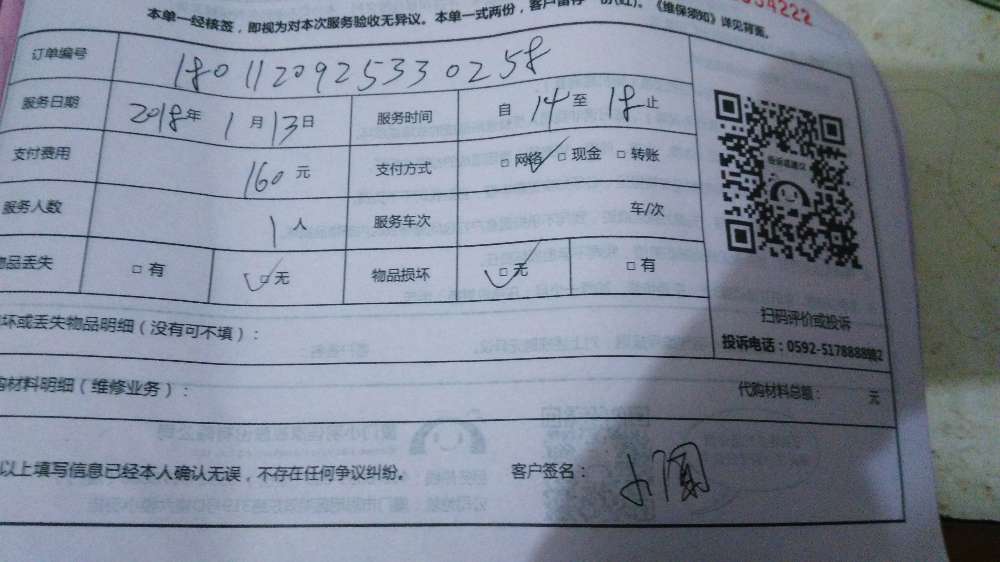 本单一经核签，即视为对本次服务验收无异议。本单一式两份，客户留存一份(红)。《维保须知》详见背面。
订单编号 1801120925330258
服务日期 2018年 1月13日 服务时间 自 14 至 18 止
支付费用 160 元 支付方式 □ 网络 □ 现金 □ 转账
服务人数 1 人 服务车次 车/次
物品丢失 □ 有 □ 无 物品损坏 □ 无 □ 有
坏或丢失物品明细（没有可不填）：
扫码评价或投诉
投诉电话：0592-5178888转2
购材料明细（维修业务）： 代购材料总额： 元
以上填写信息已经本人确认无误，不存在任何争议纠纷。 客户签名：